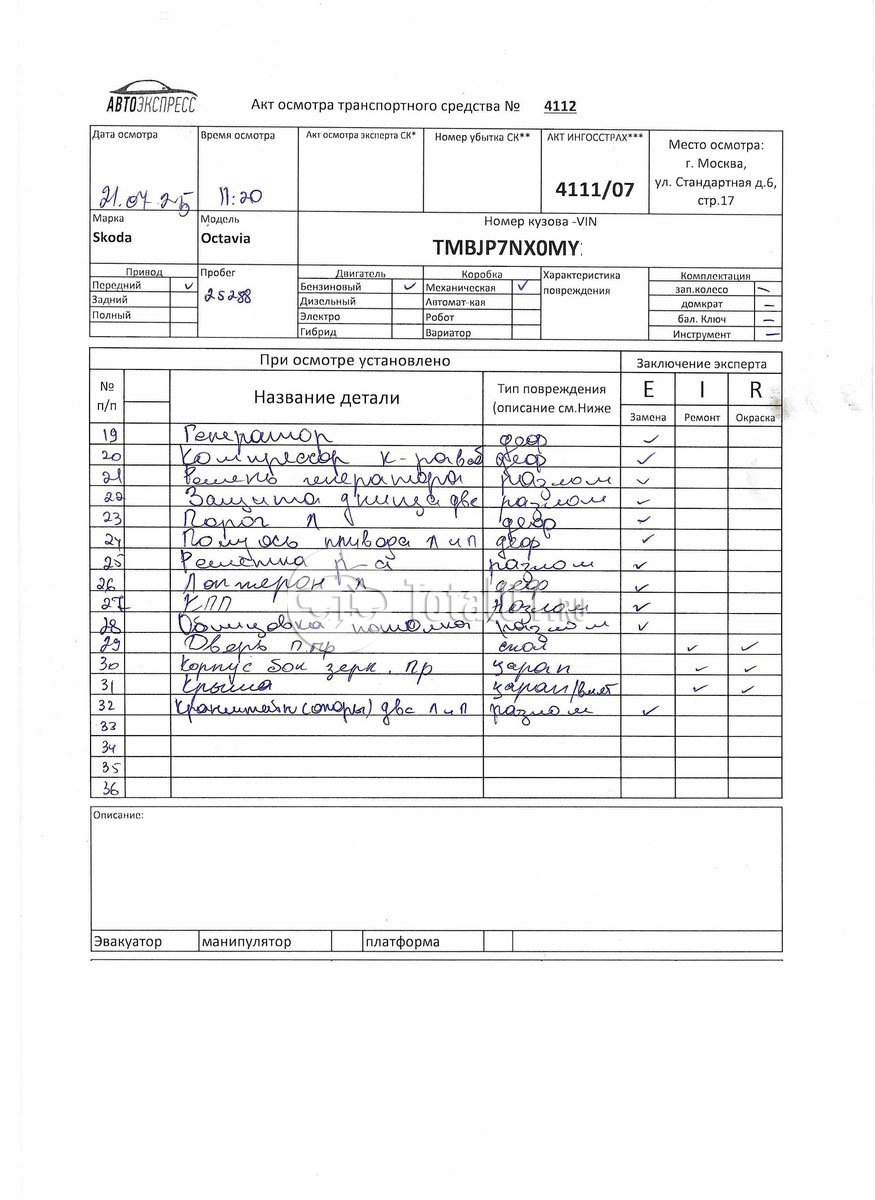 АВТОЭКСПРЕСС
Акт осмотра транспортного средства № 4112
Дата осмотра Время осмотра Акт осмотра эксперта СК* Номер убытка СК** АКТ ИНГОССТРАХ*** Место осмотра:
г. Москва,
ул. Стандартная д.6,
стр.17
21.07.25 11:20 4111/07
Марка Модель Номер кузова -VIN
Skoda Octavia TMBJP7NX0MY
Привод Пробег Двигатель Коробка Характеристика повреждения Комплектация
Передний ✓ 25288 Бензиновый ✓ Механическая ✓ зап.колесо –
Задний Дизельный Автомат-кая домкрат –
Полный Электро Робот бал. Ключ –
Гибрид Вариатор Инструмент –
При осмотре установлено Заключение эксперта
№ п/п Название детали Тип повреждения (описание см.Ниже E I R
Замена Ремонт Окраска
19 Генератор деф ✓
20 Компрессор деф ✓
21 Ремень генератора разлом ✓
22 Защита днища две разлом ✓
23 Порог Л деф ✓
24 Полуось привода Л и П деф ✓
25 разлом ✓
26 Лонжерон Л деф ✓
27 КПП разлом ✓
28 Облицовка разлом ✓
29 Дверь П пр ✓ ✓
30 Корпус бок зерк. Пр царап ✓ ✓
31 Крыша царап/вмят ✓ ✓
32 Кронштейн (опоры) два Л и П разлом ✓
33
34
35
36
TotalCar.RU
Описание:
Эвакуатор манипулятор платформа